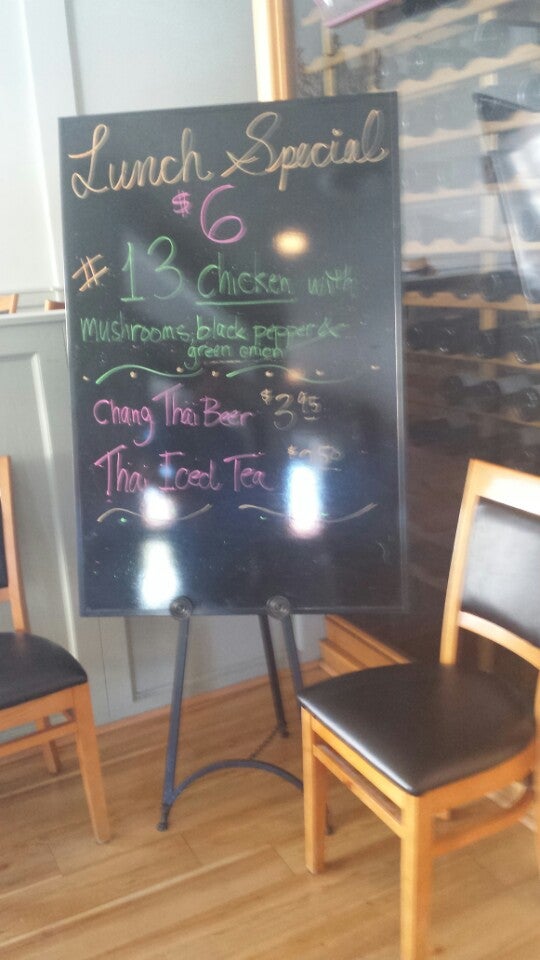 Lunch Special
$6
#13 chicken with
mushrooms, black pepper &
green onion
Chang Thai Beer $3.95
Thai Iced Tea